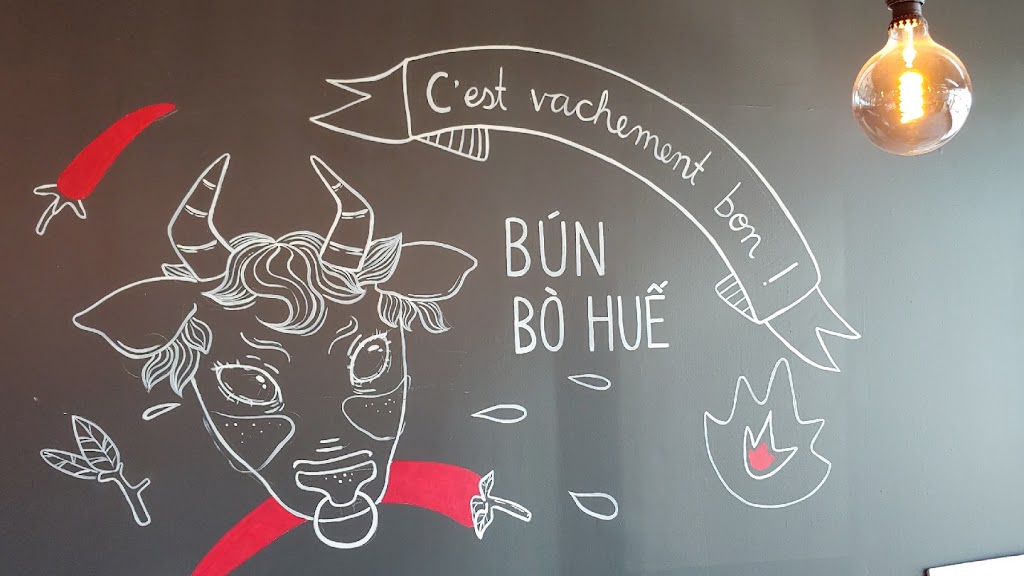 C'est vachement bon !
BÚN
BÒ HUẾ